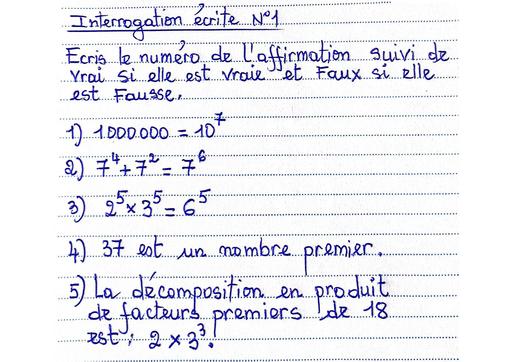 Interrogation écrite N°1
Ecris le numéro de l'affirmation suivi de
vrai si elle est vraie et Faux si elle
est Fausse.
1) 1.000.000 = 10⁷
2) 7⁴ + 7² = 7⁶
3) 2⁵ × 3⁵ = 6⁵
4) 37 est un nombre premier.
5) La décomposition en produit
de facteurs premiers de 18
est : 2 × 3³.